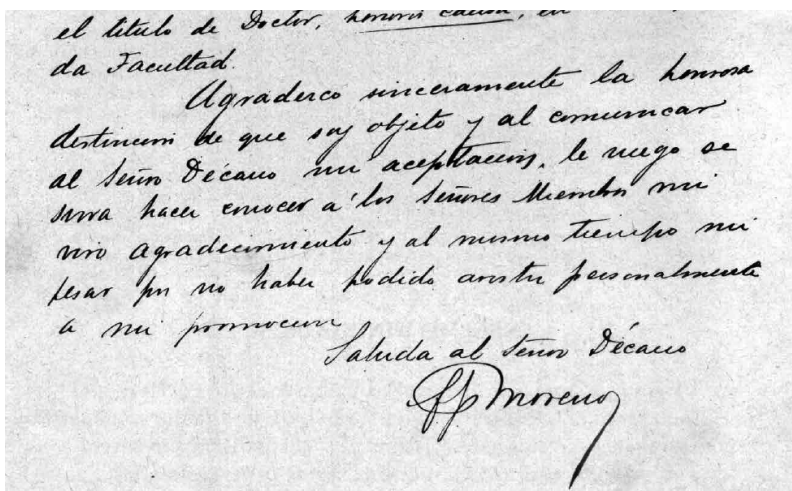 el título de Doctor, honoris causa, en
da Facultad.
Agradezco sinceramente la honrosa
distincion de que soy objeto y al comunicar
al Señor Décano mi aceptacion, le ruego se
sirva hacer conocer á los Señores Miembros mi
vivo agradecimiento y al mismo tiempo mi
pesar por no haber podido asistir personalmente
a mi promocion
Saluda al Señor Décano
Moreno